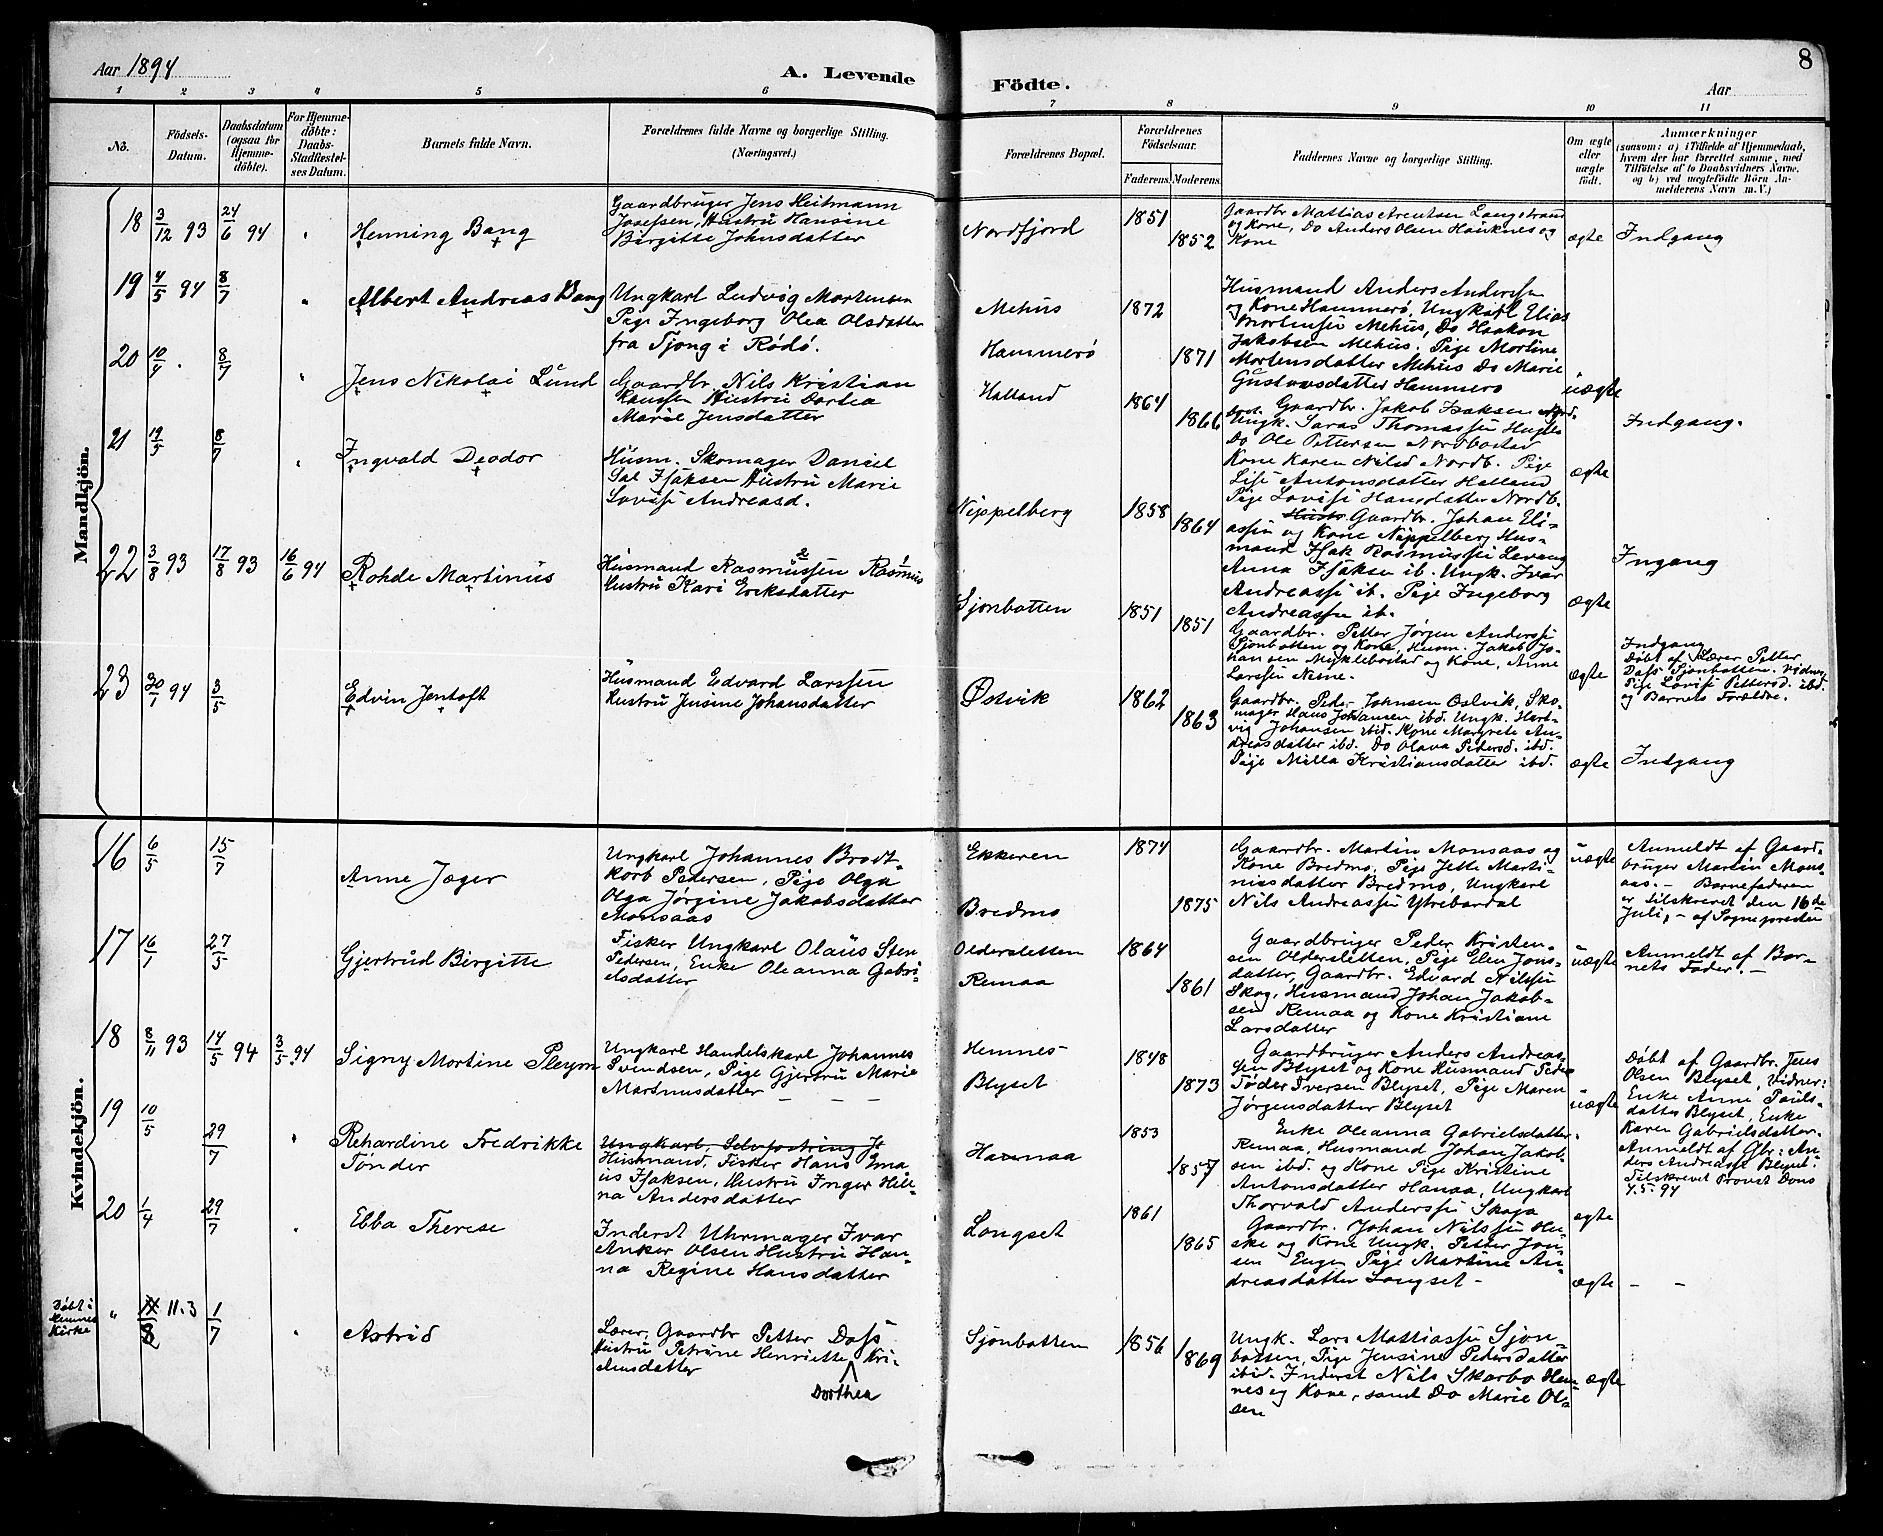 Aar 1894
A. Levende
Födte.
Aar
8
1 2 3 4 5 6 7 8 9 10 11
No.
Födsels-
Datum.
Daabsdatum
(ogsaa for
Hjemme-
döbte).
For Hjemme-
döbte:
Daabs-
Stadfæstel-
ses Datum.
Barnets fulde Navn.
Forældrenes fulde Navne og borgerlige Stilling.
(Næringsvei.)
Forældrenes Bopæl.
Forældrenes
Födselsaar.
Faderens Moderens
Faddernes Navne og borgerlige Stilling.
Om ægte
eller
uægte
födt.
Anmærkninger
(saasom: a) i Tilfælde af Hjemmedaab,
hvem der har forrettet samme, med
Tilföielse af to Daabsvidners Navne.
og b) ved uægtefödte Börn An-
melderens Navn m. V.)
Mandkjön.
18 3/12 93 24/6 94 "
Henning Bang
Gaardbruger Jens Heitmann
Josefsen, Hustru Hansine
Birgitte Johnsdatter
Nordfjord
1851
1852
Gaardbr Mattias Arentsen Langstrand
og Kone, Do Anders Olsen Hauknes og
Kone
ægte
Indgang
19 4/5 94 8/7 "
Albert Andreas Bang
Ungkarl Ludvig Mortensen
Pige Ingeborg Olea Olsdatter
fra Tjong i Rødø.
Mehus
Hammerø
1872
1871
Husmand Anders Anderssen
og Kone Hammerø, Ungkarl Elias
Mortensen Mehus, Do Haakon
Jakobsen Mehus. Pige Martine
Mortensdatter Mehus Do Marie
Gustavsdatter Hammerø
uægte
20 10/4 . 8/7 "
Jens Nikolai Lund
Gaardbr. Nils Kristian
Hanssen Hustru Dortea
Marie Jensdatter
Halland
1864
1866
Gaardbr. Jakob Isaksen
Ungk. Saras Thomassen
Do Ole Pettersen Nordbostad
Kone Karen Nilsd Nordb. Pige
Lise Antonsdatter Halland
Pige Lovise Hansdatter Nordb.
ægte
Indgang.
21 19/5 8/7 "
Ingvald Deodor
Husm. Skomager Daniel
Sal Isaksen Hustru Marie
Lovise Andreasd.
Nippelberg
1858
1864
Gaardbr. Johan Eli-
assen og Kone Nippelberg Hus-
mand Isak Rasmussen Levang
Anna Isaksen ib. Ungk. Ivar
Andreassen ib. Pige Ingeborg
Andreassen ib.
ægte
Ingang
22 3/8 93 17/8 93 16/6 94
Rohde Martinus
Husmand Rasmussen Rasmus
2 1
Hustru Kari Eriksdatter
Sjonbotten
1851
1851
Gaardbr. Petter Jørgen Anderssen
Sjonbotten og Kone, Husm. Jakob Jo-
hansen Myklebostad og Kone, Anne
Larssen
ægte
Indgang
Døbt af Lærer Petter
Dass Sjonbotten. Vidner
Pige Lovise Pettersd. ibd.
og Barnets Forældre.
23 30/1 94 3/5
Edvin Jentoft
Husmand Edvard Larssen
Hustru Jensine Johansdatter
Østvik
1862
1863
Gaardbr. Peder Johnsen Østvik, Sko-
mager Hans Johansen ibd. Ungk. Hart-
vig Johansen ibid. Kone Margrete An-
dreasdatter ibd. Do Olava Pedersd. ibd.
Pige Milla Kristiansdatter ibd.
ægte
Indgang
Kvindekjön.
16 6/5 15/7
Anne Jæger
Ungkarl Johannes Brodt-
korb Pedersen, Pige Olga
Olga Jørgine Jakobsdatter
Monsaas
Ekkeren
Bredmo
1874
1875
Gaardbr. Martin Monsaas og
Kone Bredmo, Pige Jette Marti-
nusdatter Bredmo, Ungkarl
Nils Andreassen Ytrebardal
uægte
Anmeldt af Gaard-
bruger Martin Mons-
aas. – Barnefaderen
er tilskrevet den 16de
Juli, – af Sognepresten
17 16/1 27/5
Gjertrud Birgitte
Fisker Ungkarl Olaus Sten
Pedersen, Enke Oleanna Gabri-
elsdatter
Oldersletten
Remaa
1864
1861
Gaardbruger Peder Kristen-
sen Oldersletten, Pige Elen Jons-
datter, Gaardbr. Edvard Nilssen
Skog, Husmand Johan Jakob-
sen Remaa og Kone Kristiane
Larsdatter
uægte
Anmeldt af Bar-
nets Fader. –
18 8/11 93 14/5 94 3/5 94
Signy Mortine Pleym
Ungkarl Handelskarl Johannes
Svendsen, Pige Gjertru Marie
Martinusdatter – – –
Hemnes
Blyset
1848
1873
Gaardbruger Anders Andreas-
sen Blyset og Kone Husmand Peder
Tøder Iversen Blyset, Pige Maren
Jørgensdatter Blyset
uægte
Døbt af Gaardbr. Jens
Olsen Blyset, Vidner:
Enke Anne Pauls-
datter Blyset, Enke
Karen Gabrielsdatter.
Anmeldt af Gbr. An-
ders Andreasse Blyset.
Tilskrevet Provst Dons
7.5.94
19 10/5 29/7 "
Rehardine Fredrikke
Tønder
Ungkarl, Selvfostring J
Husmand, Fisker Hans Ema-
us Isaksen, Hustru Inger Hele-
na Andersdatter
Hanaa
1853
1857
Enke Oleanna Gabrielsdatter
Remaa, Husmand Johan Jakob-
sen ibd. og Kone Pige Kristine
Antonsdatter Hanaa, Ungkarl
Thorvald Anderssen Skaga
ægte
20 1/4 29/7 "
Ebba Therese
Inderst Uhrmager Ivar
Anker Olsen Hustru Han-
na Regine Hansdatter
Longset
1861
1865
Gaardbr. Johan Nilssen Hu-
ske og Kone Ungk. Petter Jon-
sen Enger Pige Martine An-
dreasdatter Longset –
ægte
– –
Døbt i
Hemnes
Kirke
" 11.3 1/7 "
Astrid
Lærer, Gaardbr Petter Dass
Hustru Petrine Henriette Kri-
stensdatter
Dorthea
Sjonbotten
1856
1869
Ungk. Lars Mattiassen Sjon-
botten, Pige Jensine Pedersdatter
ibid. Inderst Nils Skarbo Hem-
nes og Kone, samt Do Marie Ol-
sen
ægte